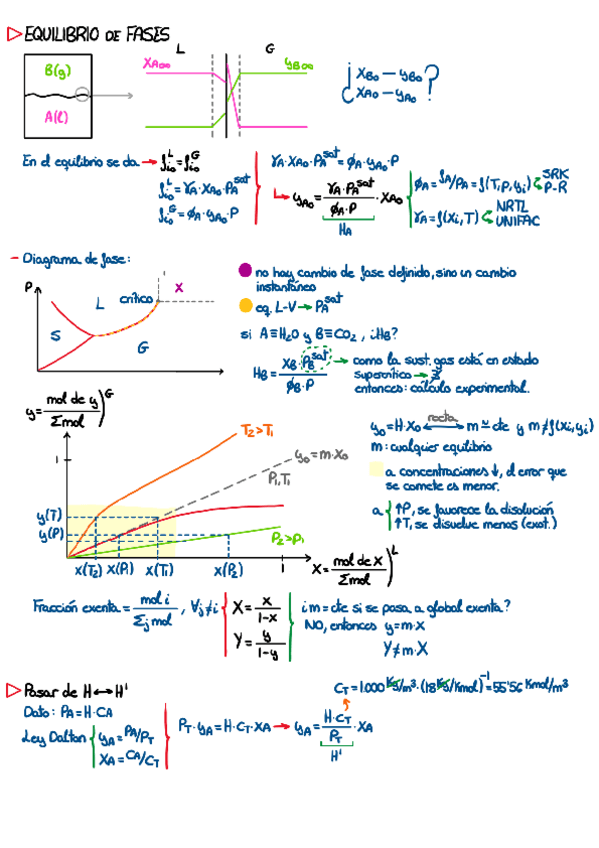 EQUILIBRIO DE FASES
L G
B(g)
A(l)
XA∞ yB∞
¿ XBo — yBo
XAo — yAo ?
En el equilibrio se da → fio^L = fio^G
fio^L = γA·XAo·PA^sat
fio^G = ϕA·yAo·P
γA·XAo·PA^sat = ϕA·yAo·P
↳ yAo = γA·PA^sat / ϕA·P · XAo
HA
ϕA = fA/PA = f(T,P,yi) SRK P-R
γA = f(xi,T) NRTL UNIFAC
- Diagrama de fase:
P
S L G crítico X
no hay cambio de fase definido, sino un cambio
instantáneo
eq. L-V → PA^sat
si A≡H2O y B≡CO2, ¿HB?
HB = XB·PB^sat / ϕB·P → como la sust. gas está en estado
supercrítico → ∄
entonces: cálculo experimental.
y = mol de y / Σmol )^G
1
T2>T1
yo=m·Xo
P1,T1
P2>P1
y(T)
y(P)
x(T2) x(P1) x(T1) x(P2) 1
X = mol de X / Σmol )^L
yo=H·Xo ←recta→ m≅cte y m≠f(xi,yi)
m: cualquier equilibrio
a concentraciones ↓, el error que
se comete es menor.
a { ↑P, se favorece la disolución
↑T, se disuelve menos (exot.)
Fracción exenta = mol i / Σj mol , ∀j≠i
X = x / 1-x
Y = y / 1-y
¿m=cte si se pasa a global exenta?
NO, entonces y=m·x
Y≠m·X
Pasar de H↔H'
CT=1.000 Kg/m³·(18 Kg/Kmol)^-1=55'56 Kmol/m³
Dato: PA=H·CA
Ley Dalton { yA=PA/PT
XA=CA/CT
PT·yA=H·CT·XA → yA = H·CT / PT · XA
H'